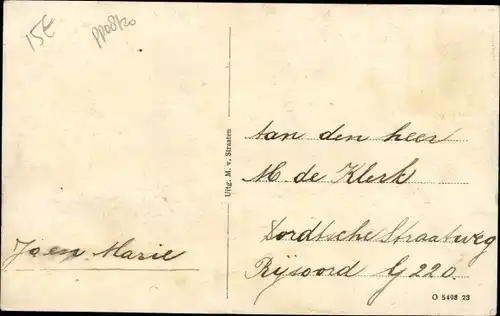 15€
pp08/20
Aan den heer
M. de Klerk
Dordtsche Straatweg
Rijsoord G 220.
Ja en Marie
Uitg. M. v. Straaten
O 5498 23